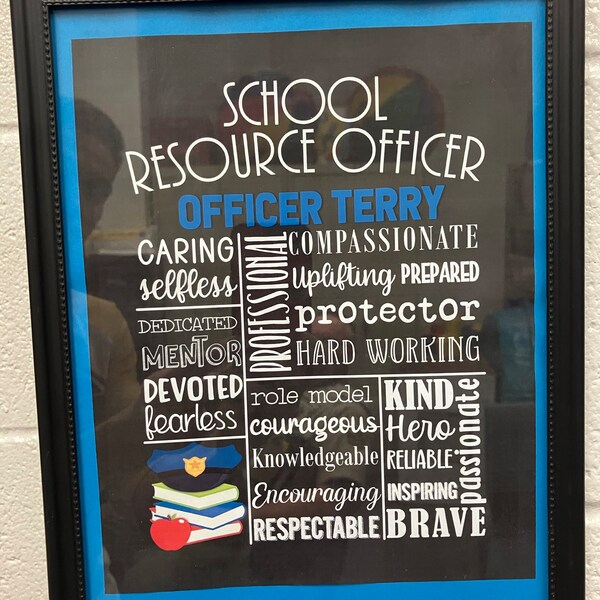 SCHOOL
RESOURCE OFFICER
OFFICER TERRY
CARING
selfless
DEDICATED
MENTOR
DEVOTED
fearless
PROFESSIONAL
COMPASSIONATE
Uplifting PREPARED
protector
HARD WORKING
role model
courageous
Knowledgeable
Encouraging
RESPECTABLE
KIND
Hero
RELIABLE
INSPIRING
BRAVE
passionate